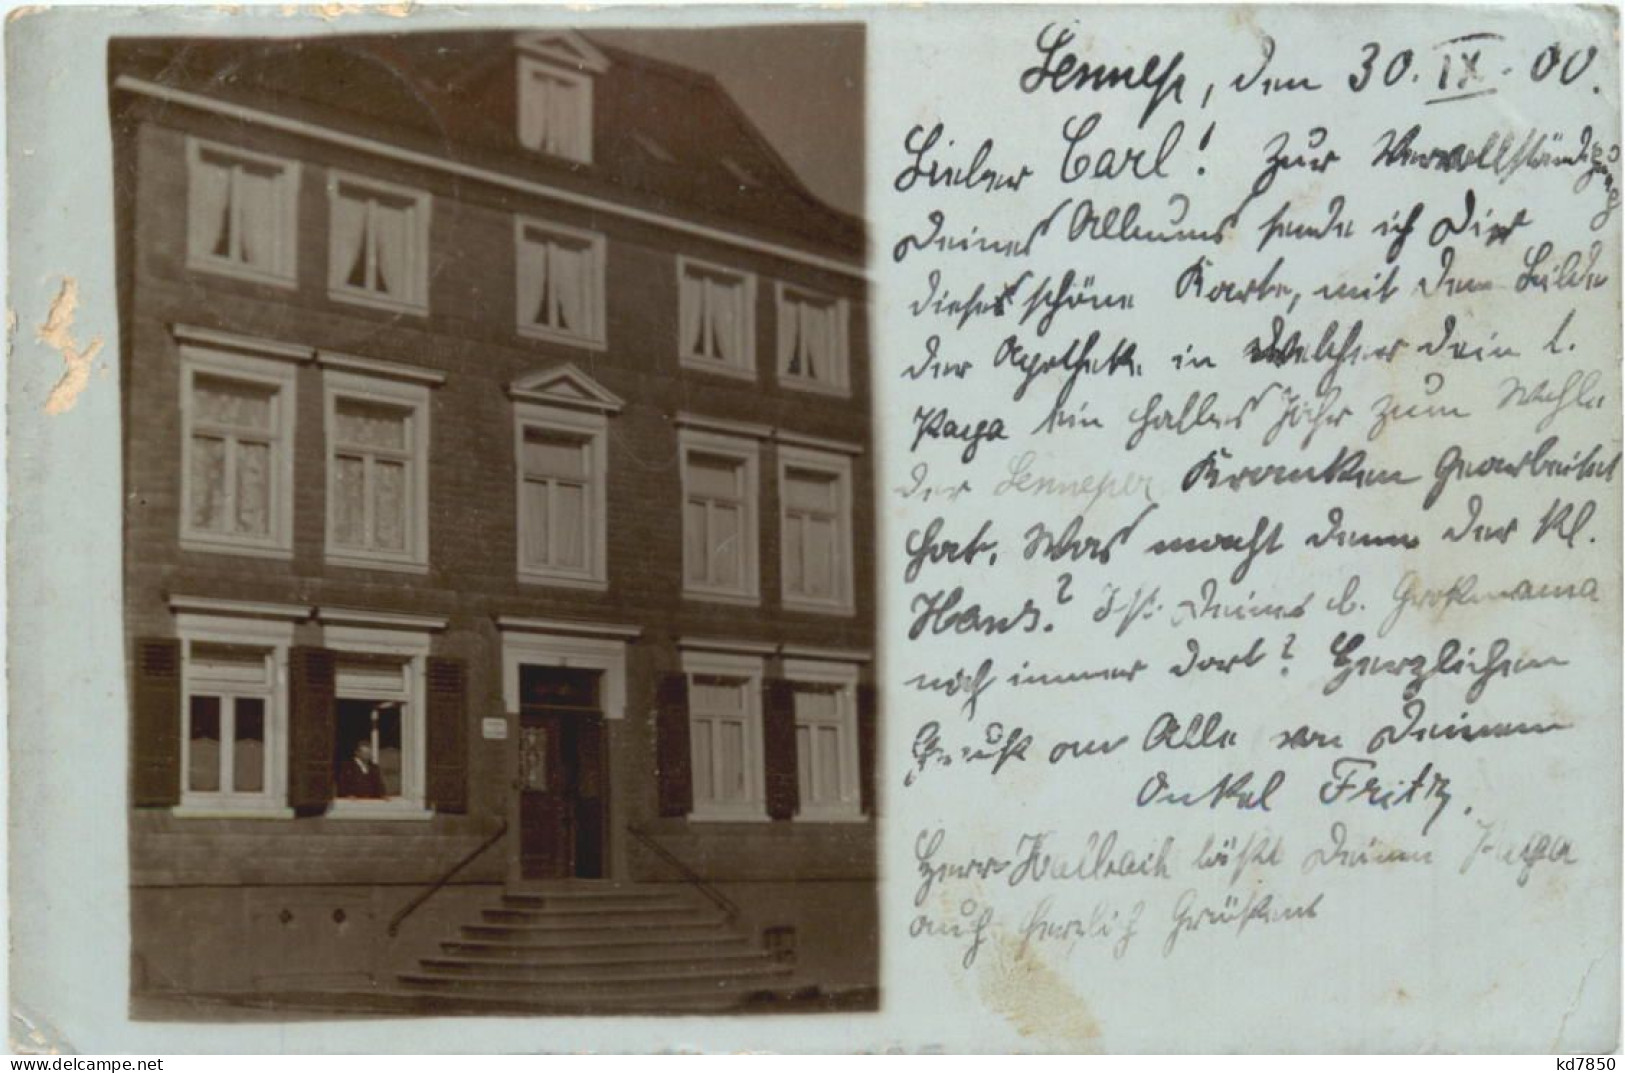 Lennep, den 30. IX. 00.
Lieber Carl! Zur Vervollständigung
Deines Albums sende ich Dir
diese schöne Karte, mit dem Bilde
der Apotheke in welcher Dein l.
Papa ein halbes Jahr zum Wohle
der Lenneper Kranken gearbeitet
hat. Was macht denn der kl.
Hans? Ist Deine l. Großmama
noch immer dort? Herzlichen
Gruß an Alle von Deinem
Onkel Fritz.
Herr läßt Deinen Papa
auch herzlich Grüßen
www.delcampe.net
kd7850